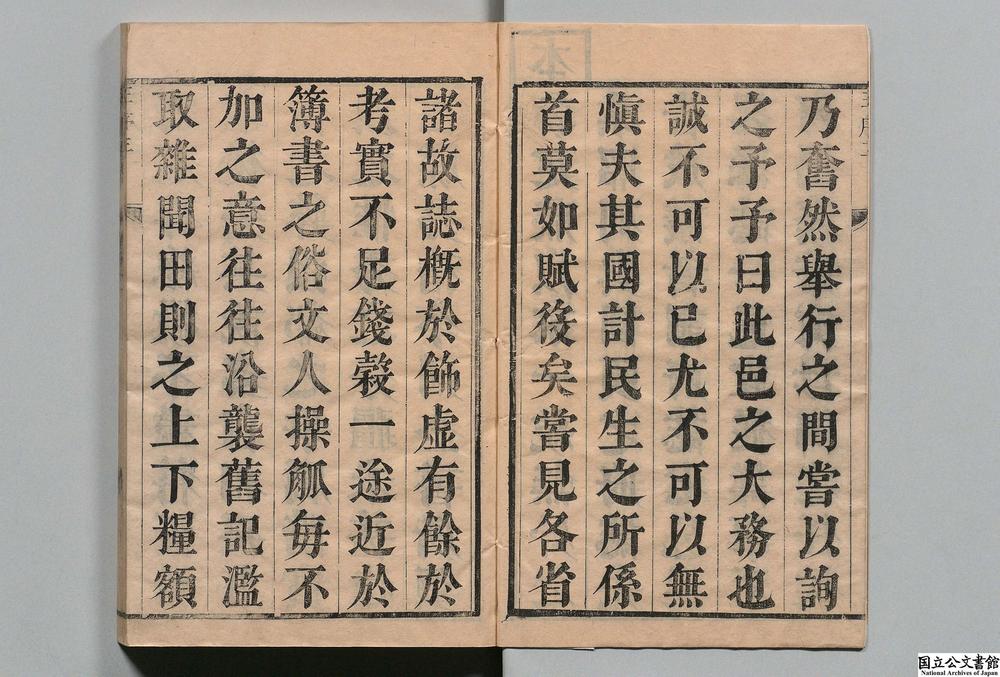 乃奮然舉行之間嘗以詢
之予予曰此邑之大務也
誠不可以已尤不可以無
愼夫其國計民生之所係
首莫如賦役矣嘗見各省
諸故誌概於飾虛有餘於
考實不足錢穀一途近於
簿書之俗文人操觚每不
加之意往往沿襲舊記濫
取雜聞田則之上下糧額
本
国立公文書館
National Archives of Japan